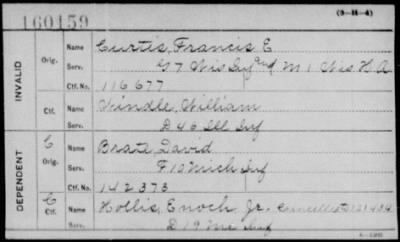 160159
(3-H-4)
INVALID
Orig. Name Curtis, Francis E
Serv. G 7 Wis Inf and M 1 Wis H A
Ctf. No. 116677
Ctf. Name Windle, William
Serv. D 46 Ill Inf
DEPENDENT
C Orig. Name Brat, David
Serv. F 10 Mich Inf
Ctf. No. 142373
C Ctf. Name Hollis, Enoch Jr.
Serv. D 19 Me Inf